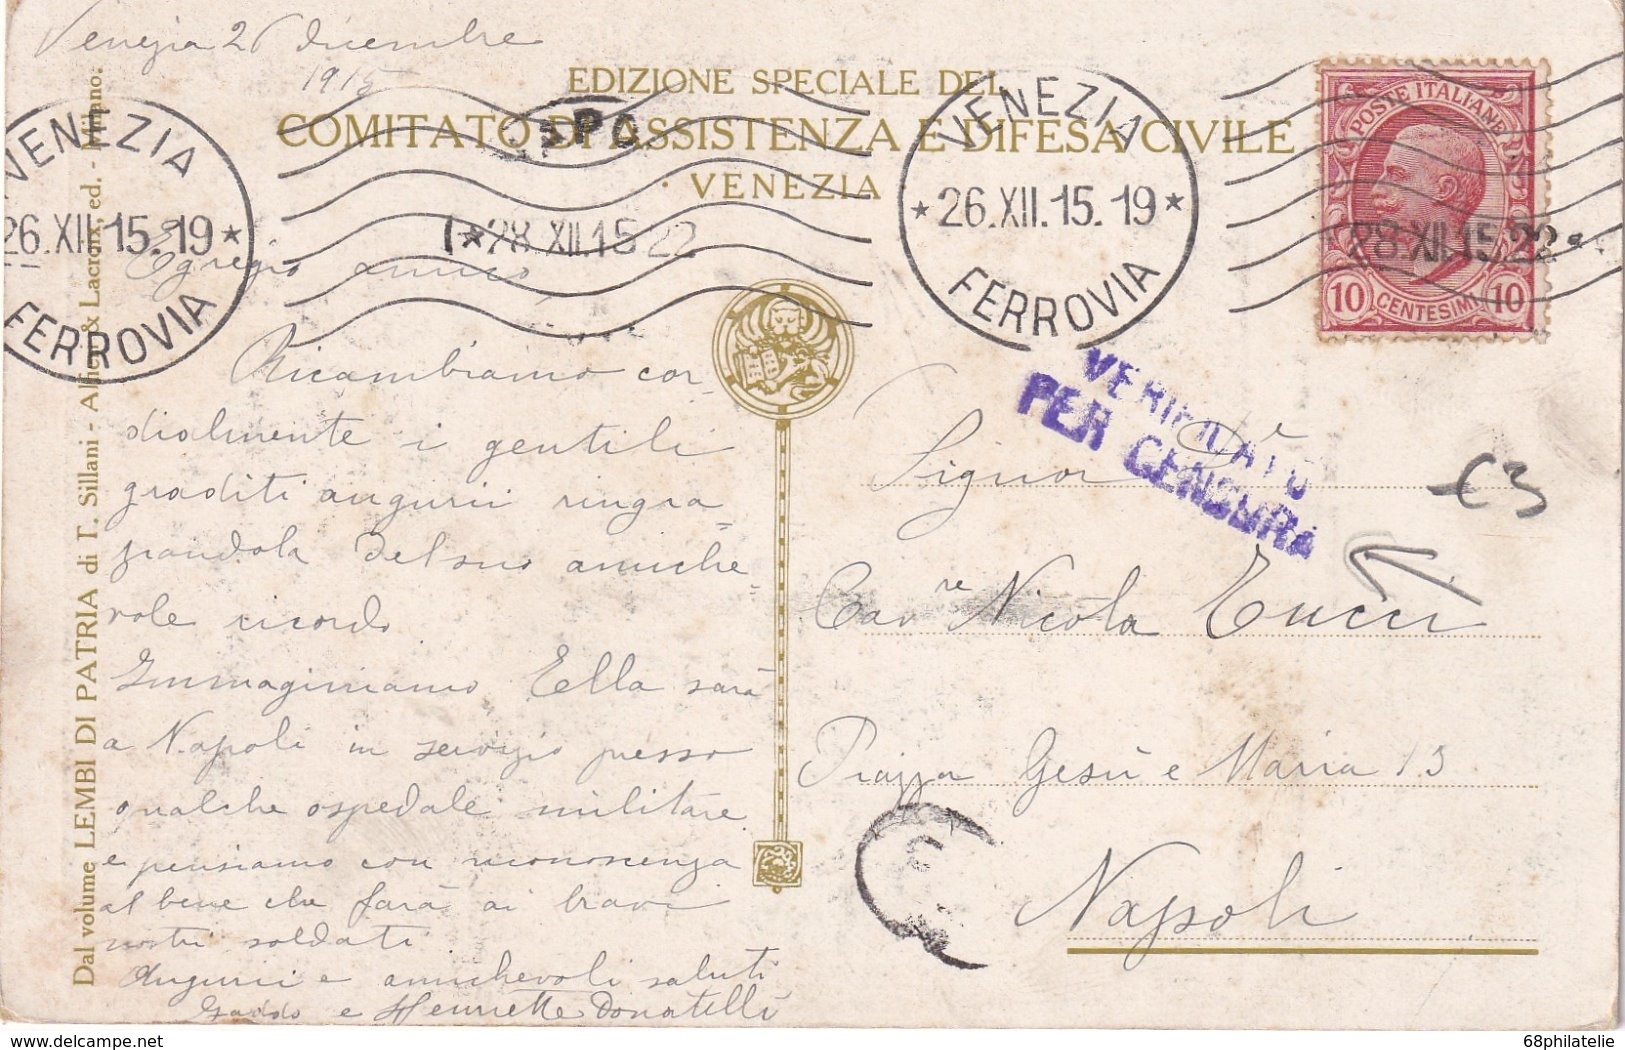 Venezia 26 dicembre
1915
EDIZIONE SPECIALE DEL
COMITATO DI ASSISTENZA E DIFESA CIVILE
VENEZIA
VENEZIA
26.XII.15.19★
FERROVIA
★28 XII 15 22
VENEZIA
★26.XII.15.19★
FERROVIA
POSTE ITALIANE
28 XII 15 22
10 CENTESIMI 10
VERIFICATO
PER CENSURA
Egregio amico
Ricambiamo cor
dialmente i gentili
graditi augurii ringra
ziandola del suo amiche
vole ricordo.
Immaginiamo Ella sarà
a Napoli in servizio presso
qualche ospedale militare
e pensiamo con riconoscenza
al bene che farà ai bravi
nostri soldati.
Augurii e amichevoli saluti
Gaddo e Henriette Donatelli
Signor
Cav re Nicola Tucci
Piazza Gesù e Maria 13
Napoli
C3
Dal volume LEMBI DI PATRIA di T. Sillani - Alfieri & Lacroix, ed. - Milano.
68philatelie
delcampe.net